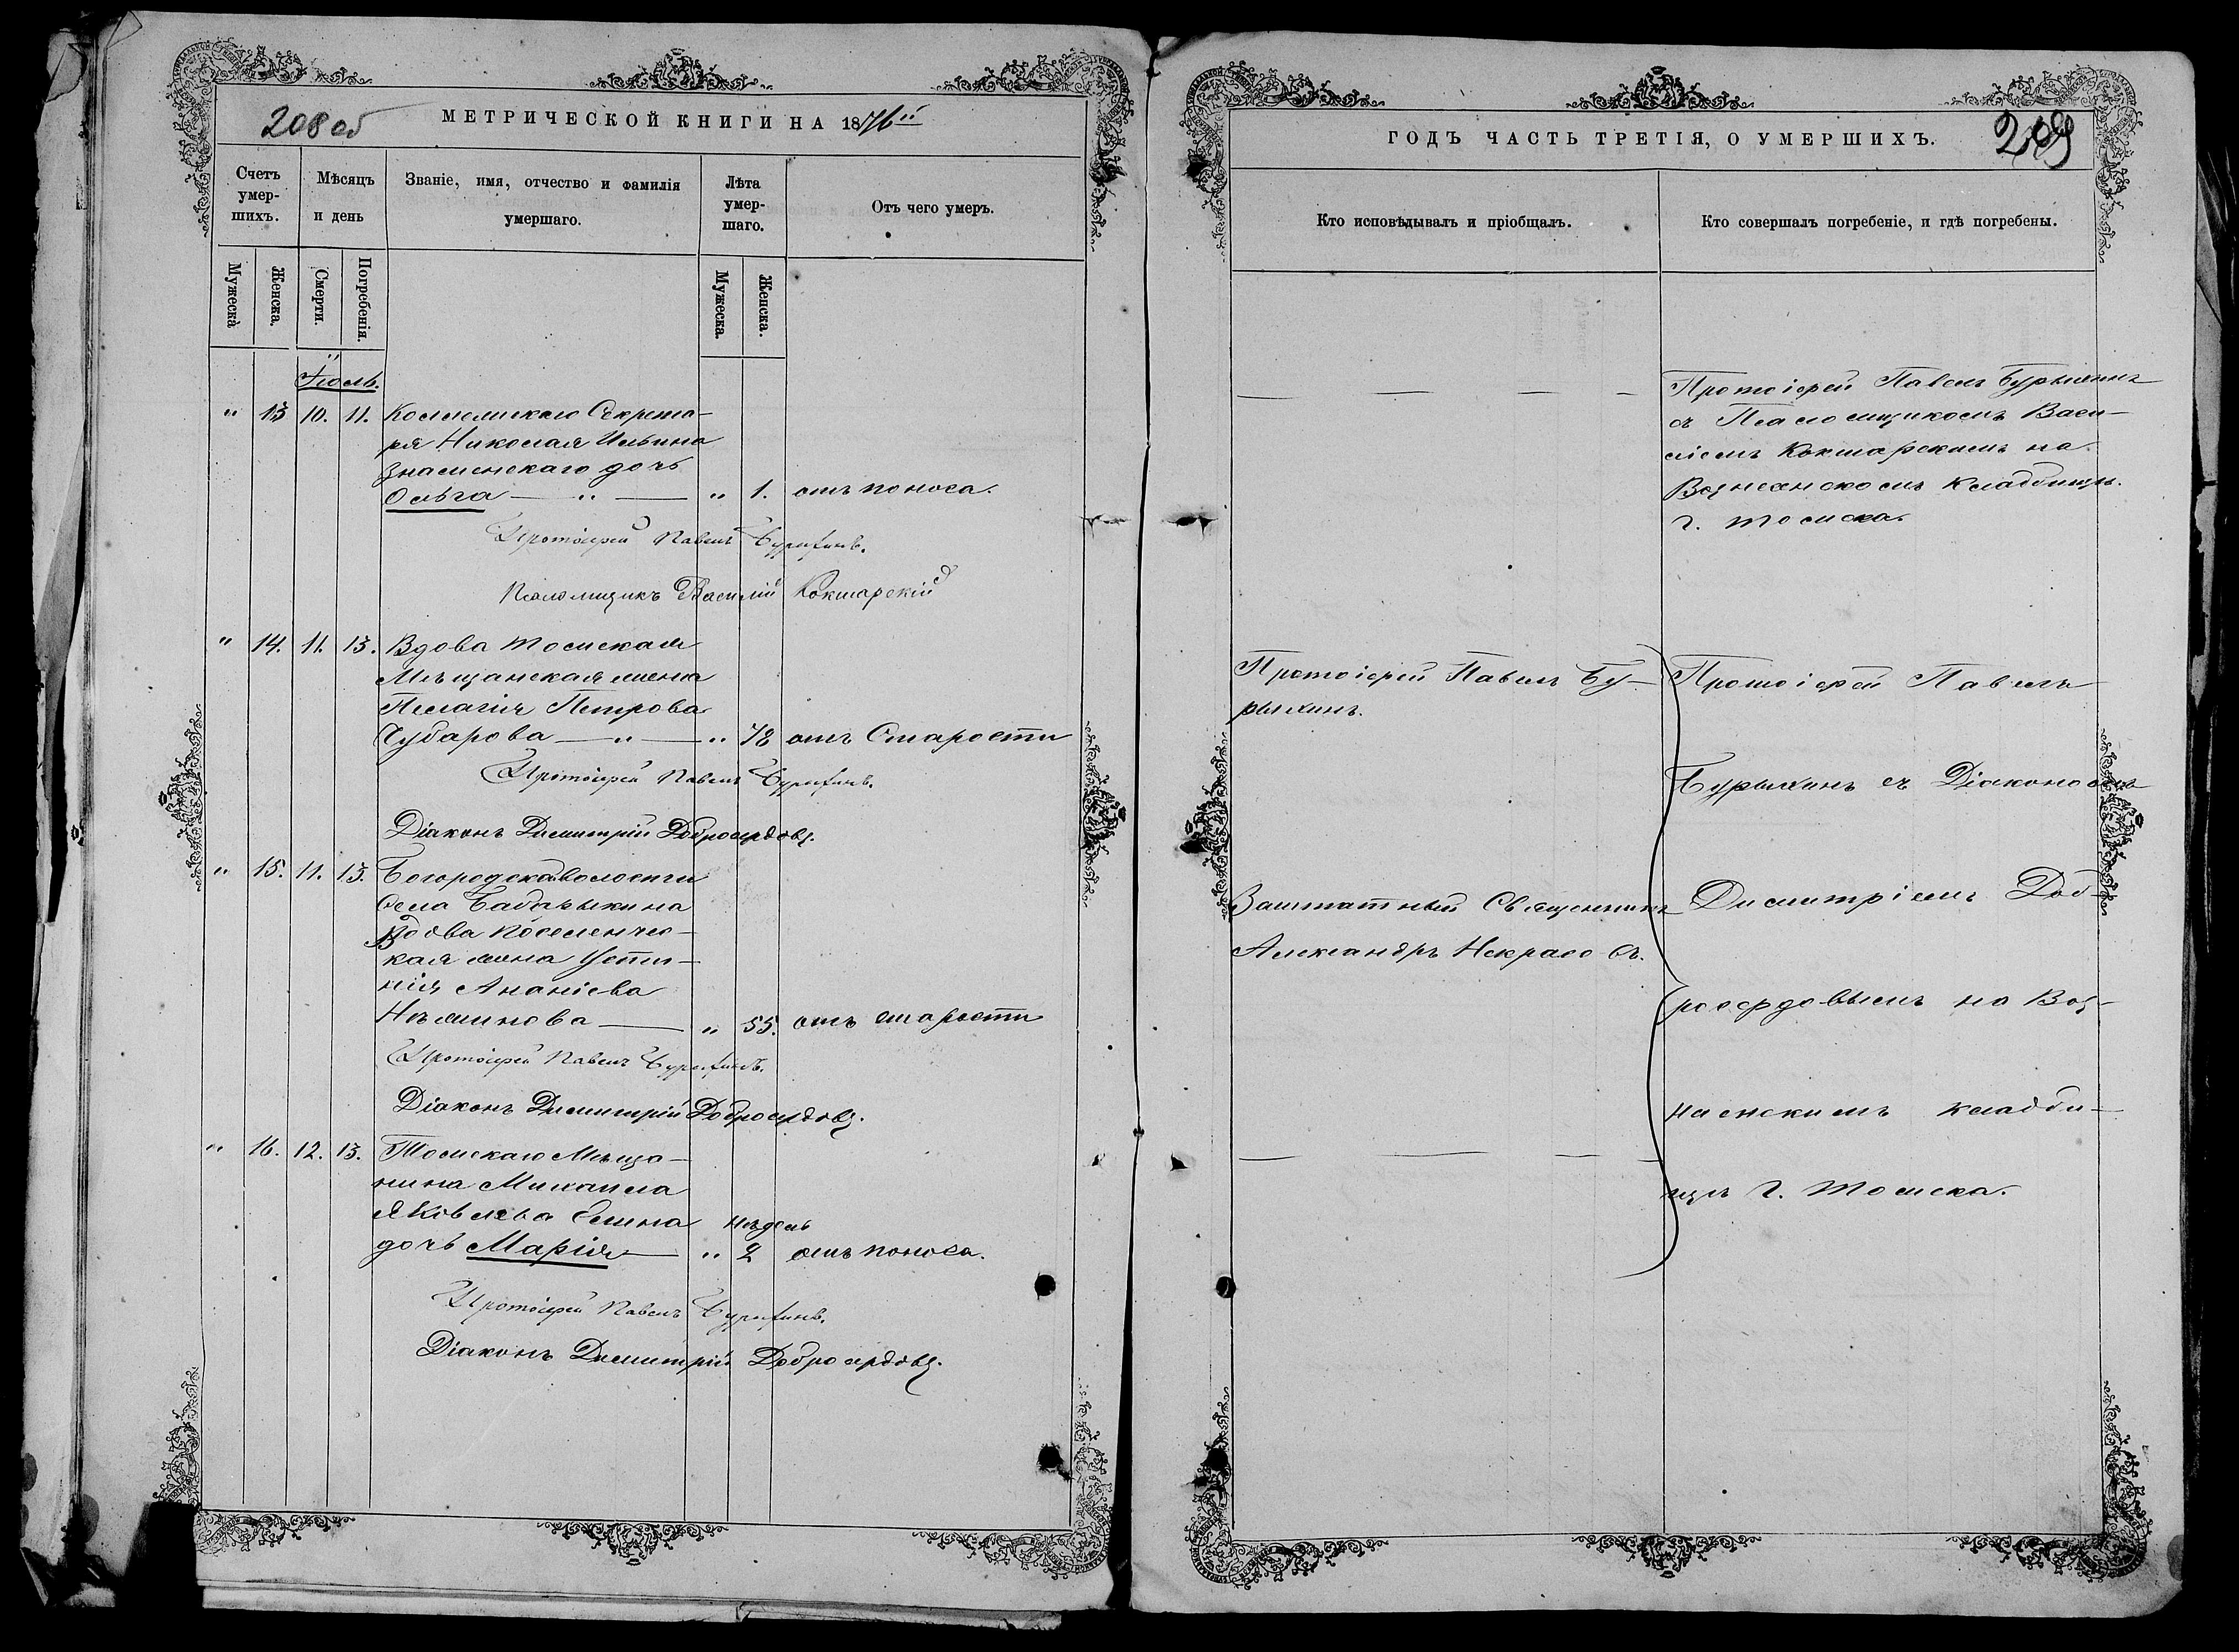 208 об
МЕТРИЧЕСКОЙ КНИГИ НА 1876й
Счетъ умер- шихъ.
Мѣсяцъ и день
Званіе, имя, отчество и фамилія умершаго.
Лѣта умер- шаго.
Отъ чего умеръ.
Мужеска
Женска.
Смерти.
Погребенія.
Мужеска.
Женска.
Іюль.
" 13 10. 11. Коллежскаго Секрета-
ря Николая Ильина
Знаменскаго дочь
Ольга — " — " 1. отъ поноса.
Протоіерей Павелъ Бурыхинъ.
Псаломщикъ Василій Кокшарскій
" 14. 11. 13. Вдова Томская
Мѣщанская жена
Пелагія Петрова
Чубарова — " — " 72 отъ Старости
Протоіерей Павелъ Бурыхинъ.
Діаконъ Димитрій Добросердовъ.
" 15. 11. 13. Богородской волости
села Бабарыкина
Вдова Поселенчес-
кая жена Усти-
нія Ананіева
Нѣминова — " 55. отъ старости
Протоіерей Павелъ Бурыхинъ.
Діаконъ Димитрій Добросердовъ.
" 16. 12. 13. Томскаго Мѣща-
нина Михаила
Яковлева дочь Марія — " недель 2 отъ поноса.
Протоіерей Павелъ Бурыхинъ.
Діаконъ Димитрій Добросердовъ.
ГОДЪ ЧАСТЬ ТРЕТІЯ, О УМЕРШИХЪ.
209
Кто исповѣдывалъ и пріобщалъ.
Кто совершалъ погребеніе, и гдѣ погребены.
— — — —
Протоіерей Павелъ Бурыхинъ
съ Псаломщикомъ Васи-
ліемъ Кокшарскимъ на
Вознесенскомъ кладбищѣ.
г. Томска.
Протоіерей Павелъ Бу-
рыхинъ.
Заштатный Священникъ
Александръ Некрасовъ.
— — — —
Протоіерей Павелъ
Бурыхинъ съ Діакономъ
Димитріемъ Доб-
росердовымъ на Воз-
несенскимъ кладби-
щѣ г. Томска.